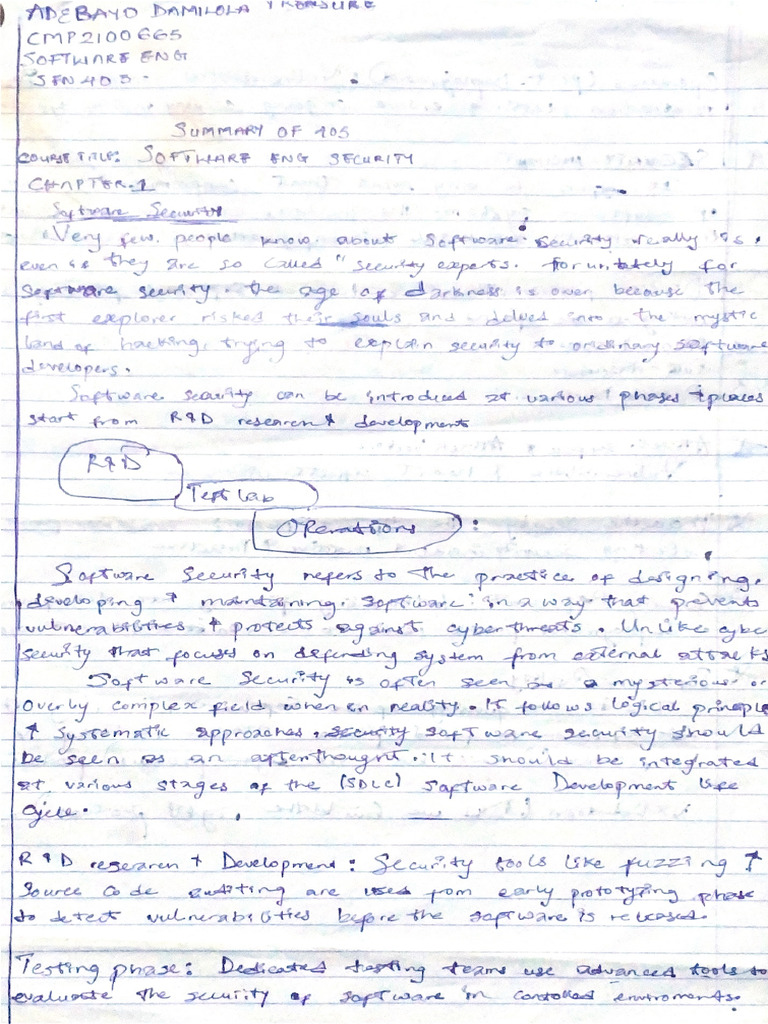 ADEBAYO DAMILOLA TREASURE
CMP2100665
SOFTWARE ENG
SEN 405 -
SUMMARY OF 405
COURSE TITLE: SOFTWARE ENG SECURITY
CHAPTER-1
Software Security
Very few people know about software security really is,
even if they are so called "security experts. Fortunately for
software security. the age of darkness is over because the
first explorer risked their souls and delved into the mystic
land of hacking, trying to explain security to ordinary software
developers.
Software security can be introduced at various phases & places
start from R&D research & development
R&D
Test Lab
Operations :
Software Security refers to the practice of designing,
developing & maintaining software in a way that prevents
vulnerabilities & protects against cyberthreats. Unlike cybe
security that focuses on defending system from external attacks
Software Security is often seen as a mysterious or
overly complex field when in reality. It follows logical principle
& systematic approaches. software security should
be seen as an afterthought. It should be integrated
at various stages of the (SDLC) Software Development life
Cycle.
R&D research & Development: Security tools like fuzzing &
Source Code auditing are used from early prototyping phase
to detect vulnerabilities before the software is released.
Testing phase: Dedicated testing teams use advanced tools to
evaluate the security of software in controlled enviroments.